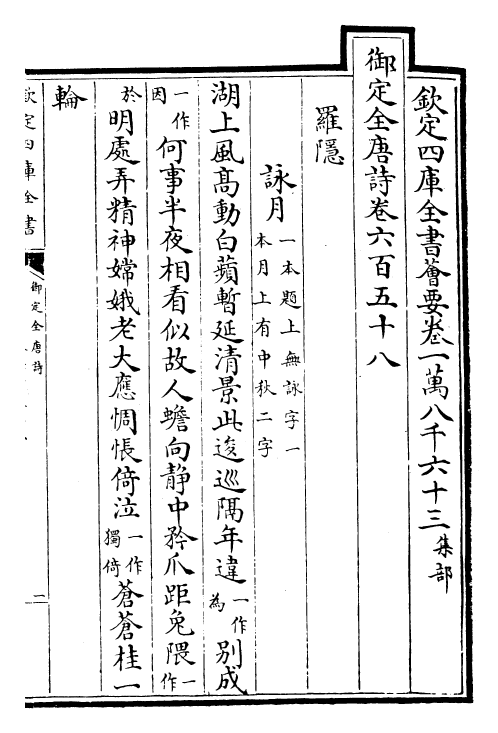 欽定四庫全書薈要卷一萬八千六十三 集部
御定全唐詩卷六百五十八
羅隱
詠月 一本題上無詠字一本月上有中秋二字
湖上風高動白蘋暫延清景此逡巡隔年違一作為別成
一作因何事半夜相看似故人蟾向静中矜爪距兔隈一作
於明處弄精神嫦娥老大應惆悵倚泣一作獨倚蒼蒼桂一
輪
欽定四庫全書
御定全唐詩
二